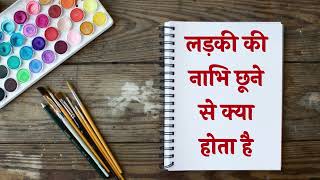 लड़की की
नाभि छूने
से क्या
होता है